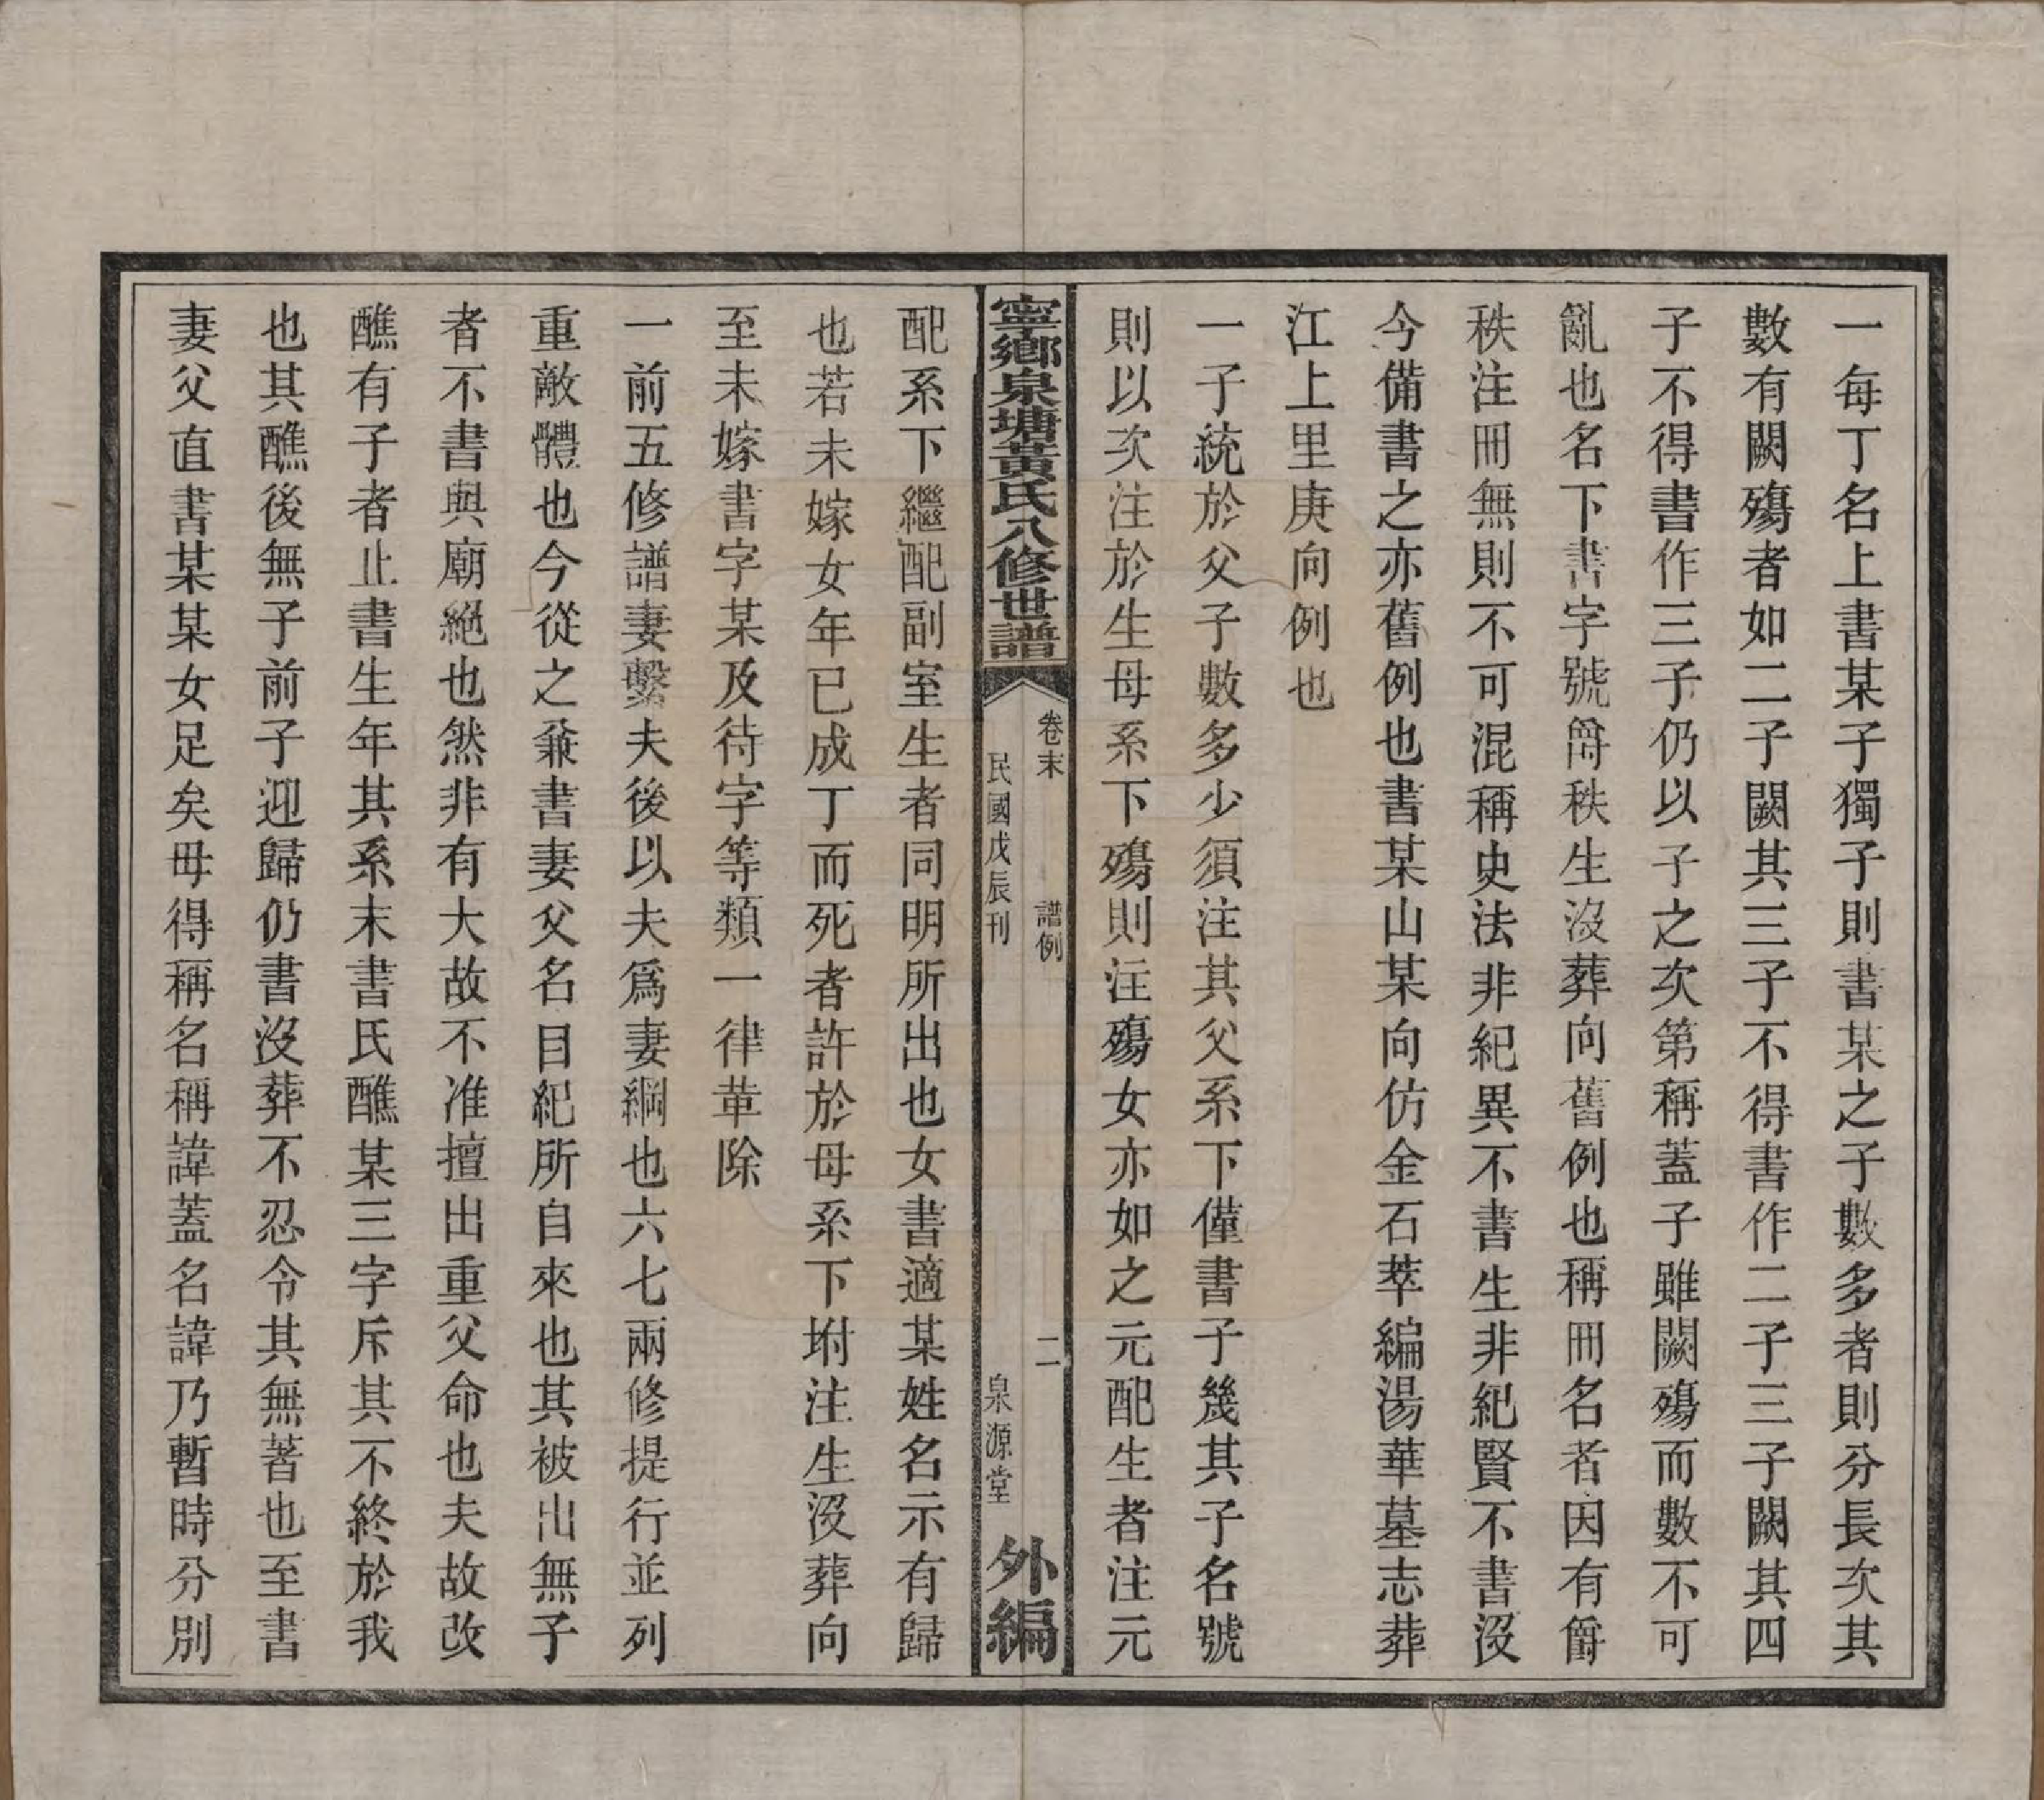 一每丁名上書某子獨子則書某之子數多者則分長次其
數有闕殤者如二子闕其三子不得書作二子三子闕其四
子不得書作三子仍以子之次第稱蓋子雖闕殤而數不可
亂也名下書字號爵秩生沒葬向舊例也稱冊名者因有爵
秩注冊無則不可混稱史法非紀異不書生非紀賢不書沒
今備書之亦舊例也書某山某向仿金石萃編湯華墓志葬
江上里庚向例也
一子統於父子數多少須注其父系下僅書子幾其子名號
則以次注於生母系下殤則注殤女亦如之元配生者注元
寧鄉泉塘黃氏八修世譜
卷末 譜例 二
民國戊辰刊 泉源堂
外編
配系下繼配副室生者同明所出也女書適某姓名示有歸
也若未嫁女年已成丁而死者許於母系下坿注生沒葬向
至未嫁書字某及待字等類一律革除
一前五修譜妻繫夫後以夫爲妻綱也六七兩修提行並列
重敵體也今從之兼書妻父名目紀所自來也其被出無子
者不書與廟絕也然非有大故不准擅出重父命也夫故改
醮有子者止書生年其系末書氏醮某三字斥其不終於我
也其醮後無子前子迎歸仍書沒葬不忍令其無著也至書
妻父直書某某女足矣毋得稱名稱諱蓋名諱乃暫時分別